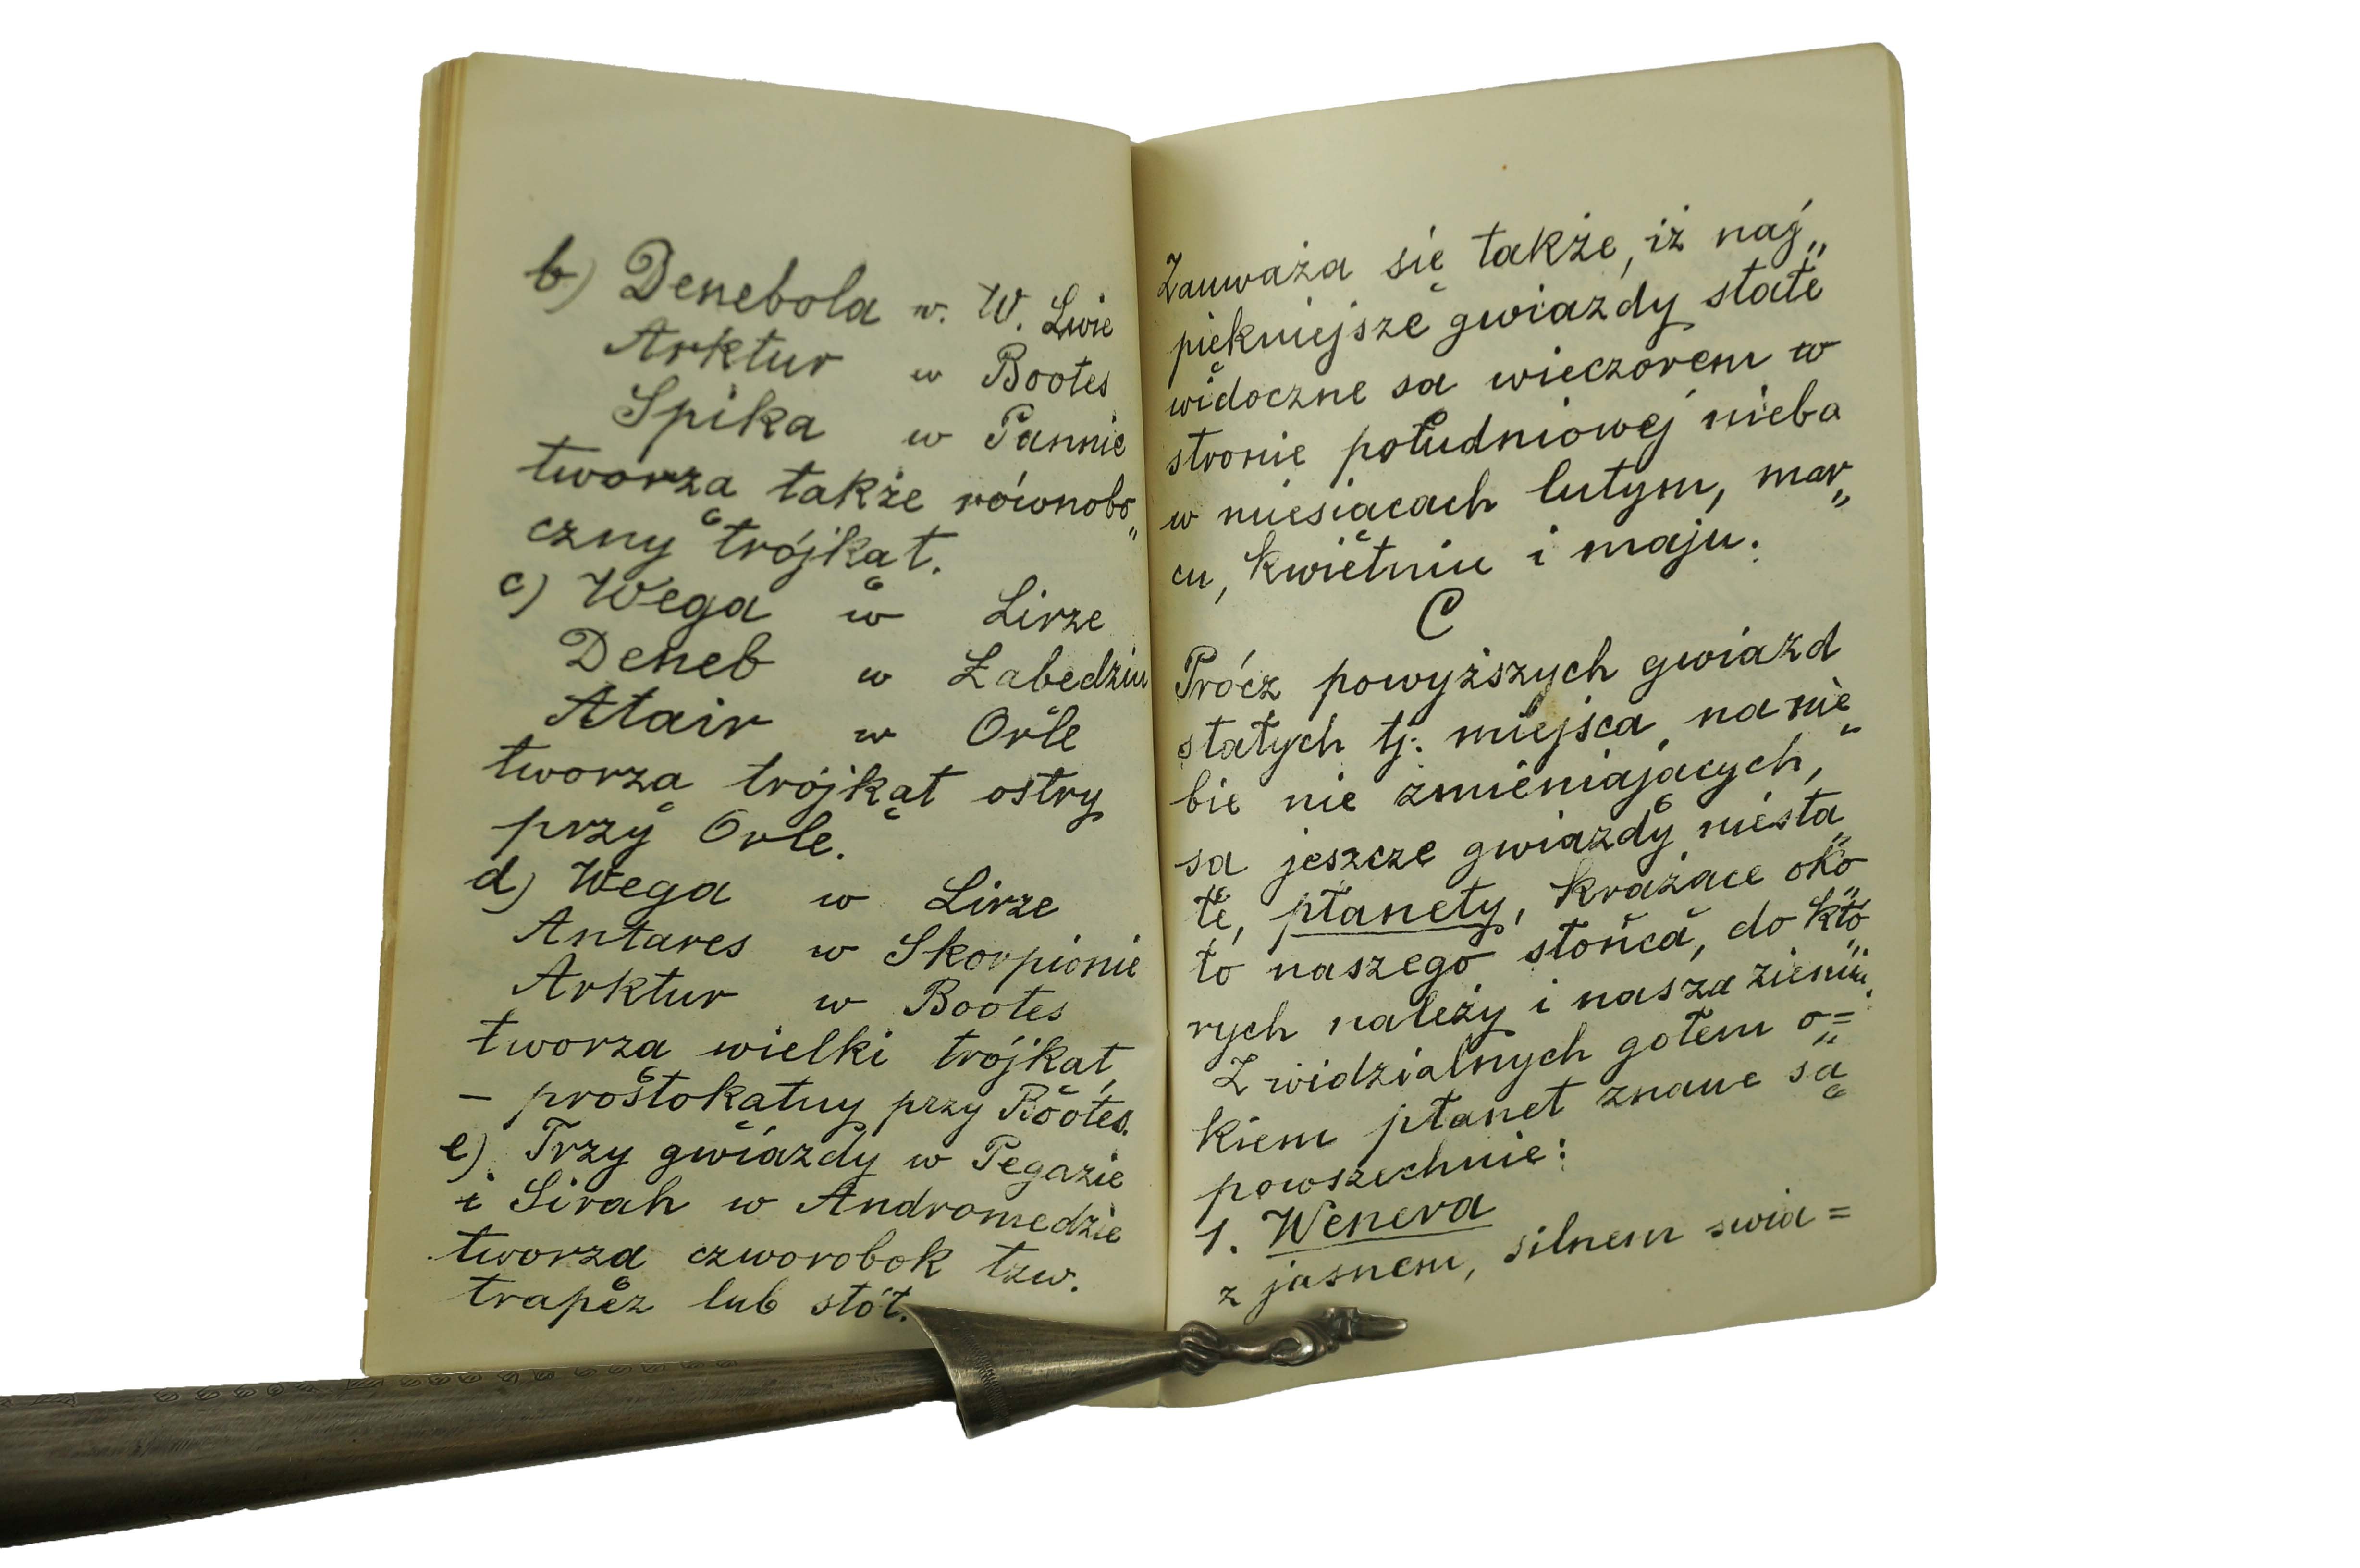 b) Denebola w. W. Lwie
Arktur w Bootes
Spika w Pannie
tworzą także równobo„
czny trójkąt.
c) Wega w Lirze
Deneb w Łabędziu
Atair w Orle
tworzą trójkąt ostry
przy Orle.
d) Wega w Lirze
Antares w Skorpionie
Arktur w Bootes
tworzą wielki trójkąt,
– prostokątny przy Bootes.
e) Trzy gwiazdy w Pegazie
i Sirah w Andromedzie
tworzą czworobok tzw.
trapez lub stół.
Zauważa się także, iż naj„
piękniejsze gwiazdy stałe
widoczne są wieczorem w
stronie południowej nieba
w miesiącach lutym, mar„
cu, kwietniu i maju.
C
Prócz powyższych gwiazd
stałych tj. miejsca na nie„
bie nie zmieniających,
są jeszcze gwiazdy niesta„
łe, płanety, krążące oko„
ło naszego słońca, do któ„
rych należy i nasza ziemia.
Z widzialnych gołem o=
kiem płanet znane są
powszechnie:
1. Wenera
z jasnem, silnem swia=